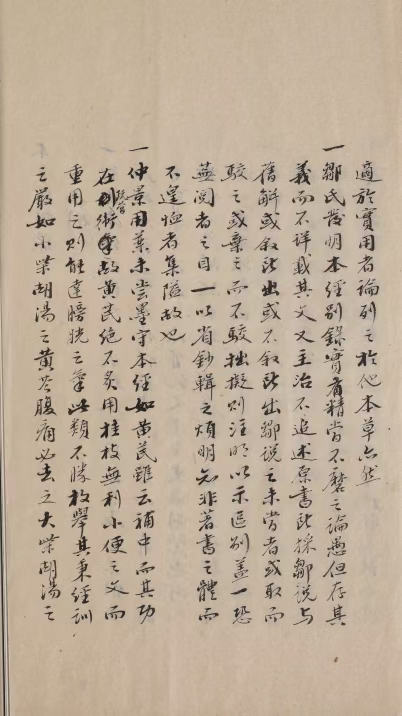 適於實用者論列之於他本草亦然
一 鄒氏發明本經別錄實有精當不磨之論愚但存其
義而不詳載其文又主治不追述原書所採鄒說与
舊解或叙所出或不叙所出鄒說之未當者或取而
駁之或棄之而不駁拙擬則注明以示區別蓋一恐
蕪閱者之目一以省鈔輯之煩明知非著書之體而
不遑恤者集隘故也
一 仲景用藥未嘗墨守本經如黄芪雖云補中而其功
在衛故黄芪絕不炙用桂枝無利小便之文而
重用之則能達膀胱之氣此類不勝枚舉其秉經訓
之嚴如小柴胡湯之黄芩腹痛必去之大柴胡湯之